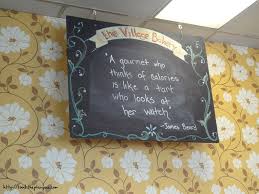 the Village Bakery
"A gourmet who
thinks of calories
is like a tart
who looks at
her watch"
-James Beard